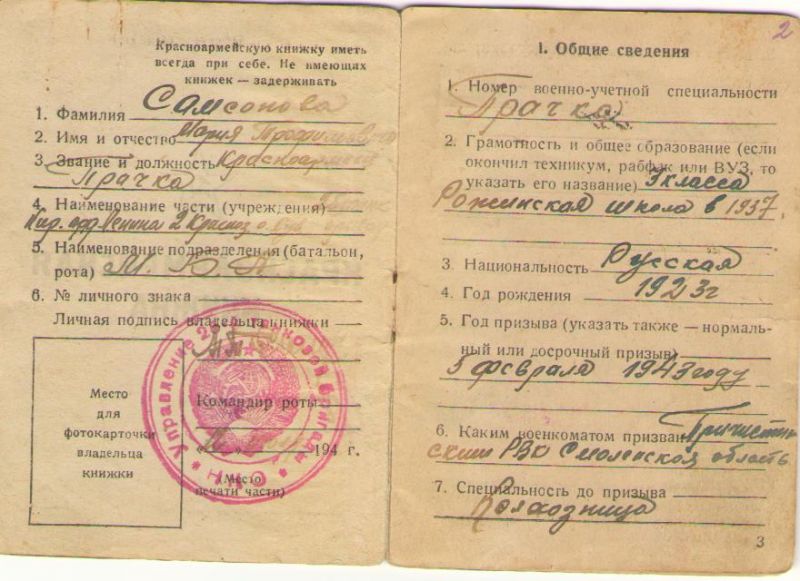 Красноармейскую книжку иметь
всегда при себе. Не имеющих
книжек — задерживать
1. Фамилия Самсонова
2. Имя и отчество Мария Трофимовна
3. Звание и должность Красноармеец
Прачка
4. Наименование части (учреждения)
Ленина 2
5. Наименование подразделения (батальон,
рота)
6. № личного знака
Личная подпись владельца книжки
Место
для
фотокарточки
владельца
книжки
Командир роты
194 г.
(Место
печати части)
Управление танковой бригады
НКО
2
I. Общие сведения
1. Номер военно-учетной специальности
Прачка
2. Грамотность и общее образование (если
окончил техникум, рабфак или ВУЗ, то
указать его название) 7 класса
школа в 1937.
3. Национальность Русская
4. Год рождения 1923 г
5. Год призыва (указать также — нормаль-
ный или досрочный призыв)
5 февраля 1943 году
6. Каким военкоматом призван Пречистен
ским РВК Смоленской область
7. Специальность до призыва
Колхозница
3